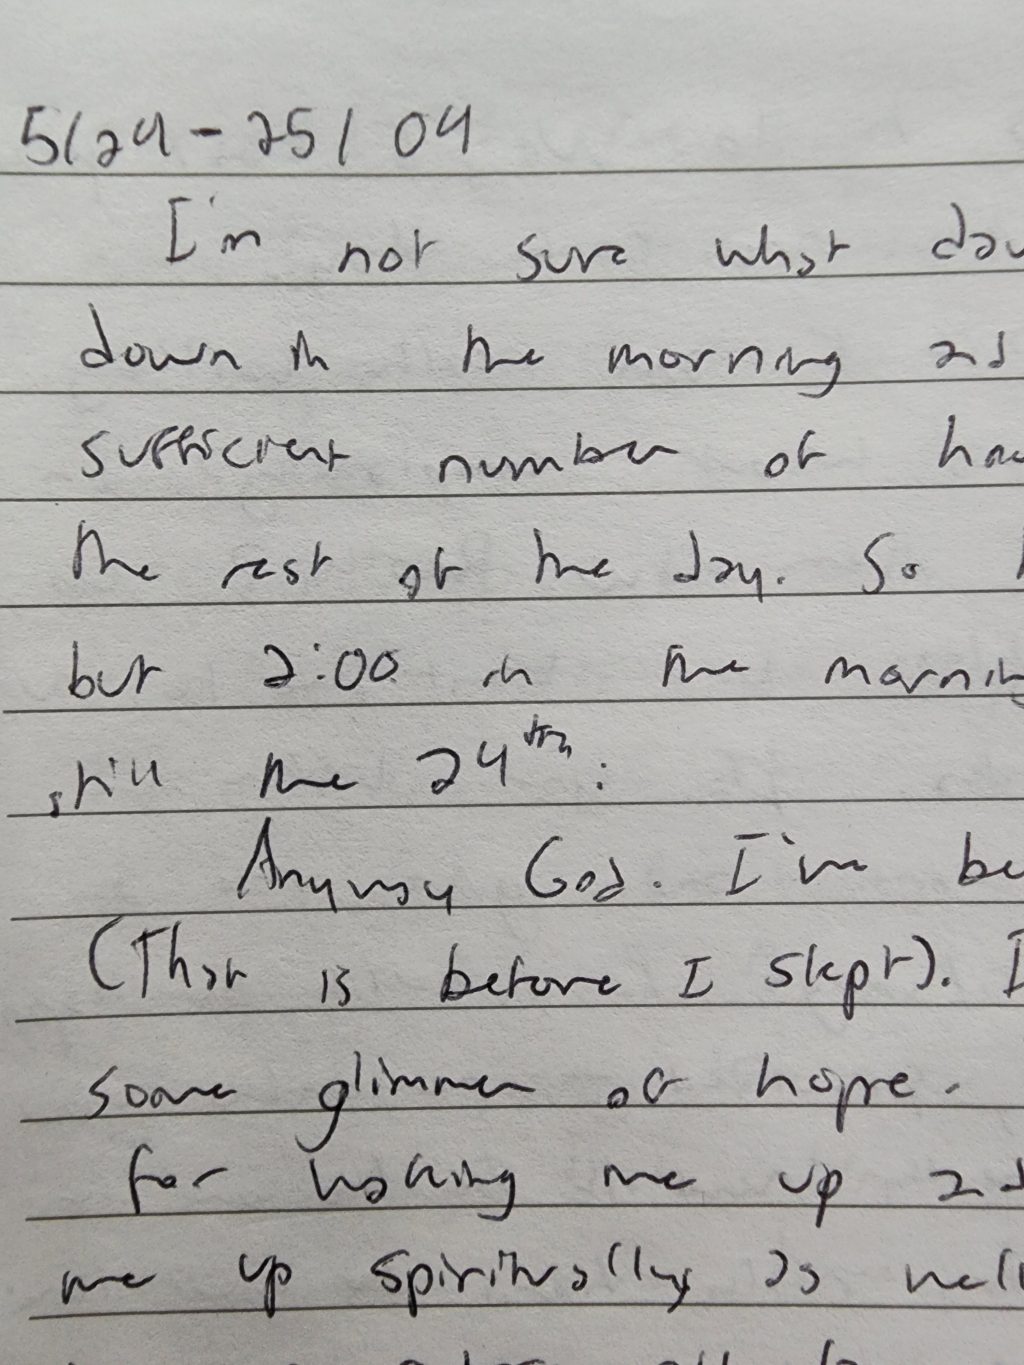 5/24-25/04
I'm not sure what day
down in the morning and
sufficient number of
the rest of the day. So
but 2:00 in the morning
still the 24th.
Anyway God. I've be
(That is before I slept). I
some glimmer of hope.
for waking me up and
me up spiritually as well